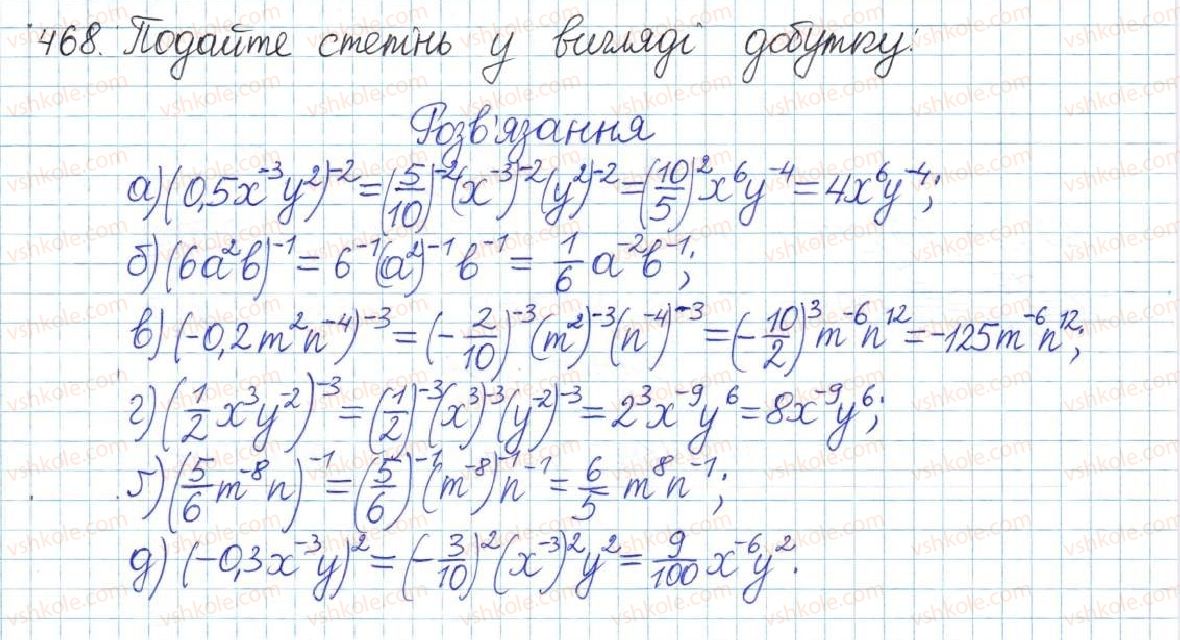 468. Подайте степінь у вигляді добутку:
Розв'язання
а) (0,5x⁻³y²)⁻² = (5/10)⁻²(x⁻³)⁻²(y²)⁻² = (10/5)²x⁶y⁻⁴ = 4x⁶y⁻⁴;
б) (6a²b)⁻¹ = 6⁻¹(a²)⁻¹b⁻¹ = 1/6 a⁻²b⁻¹;
в) (-0,2m²n⁻⁴)⁻³ = (-2/10)⁻³(m²)⁻³(n⁻⁴)⁻³ = (-10/2)³m⁻⁶n¹² = -125m⁻⁶n¹²;
г) (1/2 x³y⁻²)⁻³ = (1/2)⁻³(x³)⁻³(y⁻²)⁻³ = 2³x⁻⁹y⁶ = 8x⁻⁹y⁶;
ґ) (5/6 m⁻⁸n)⁻¹ = (5/6)⁻¹(m⁻⁸)⁻¹n⁻¹ = 6/5 m⁸n⁻¹;
д) (-0,3x⁻³y)² = (-3/10)²(x⁻³)²y² = 9/100 x⁻⁶y².